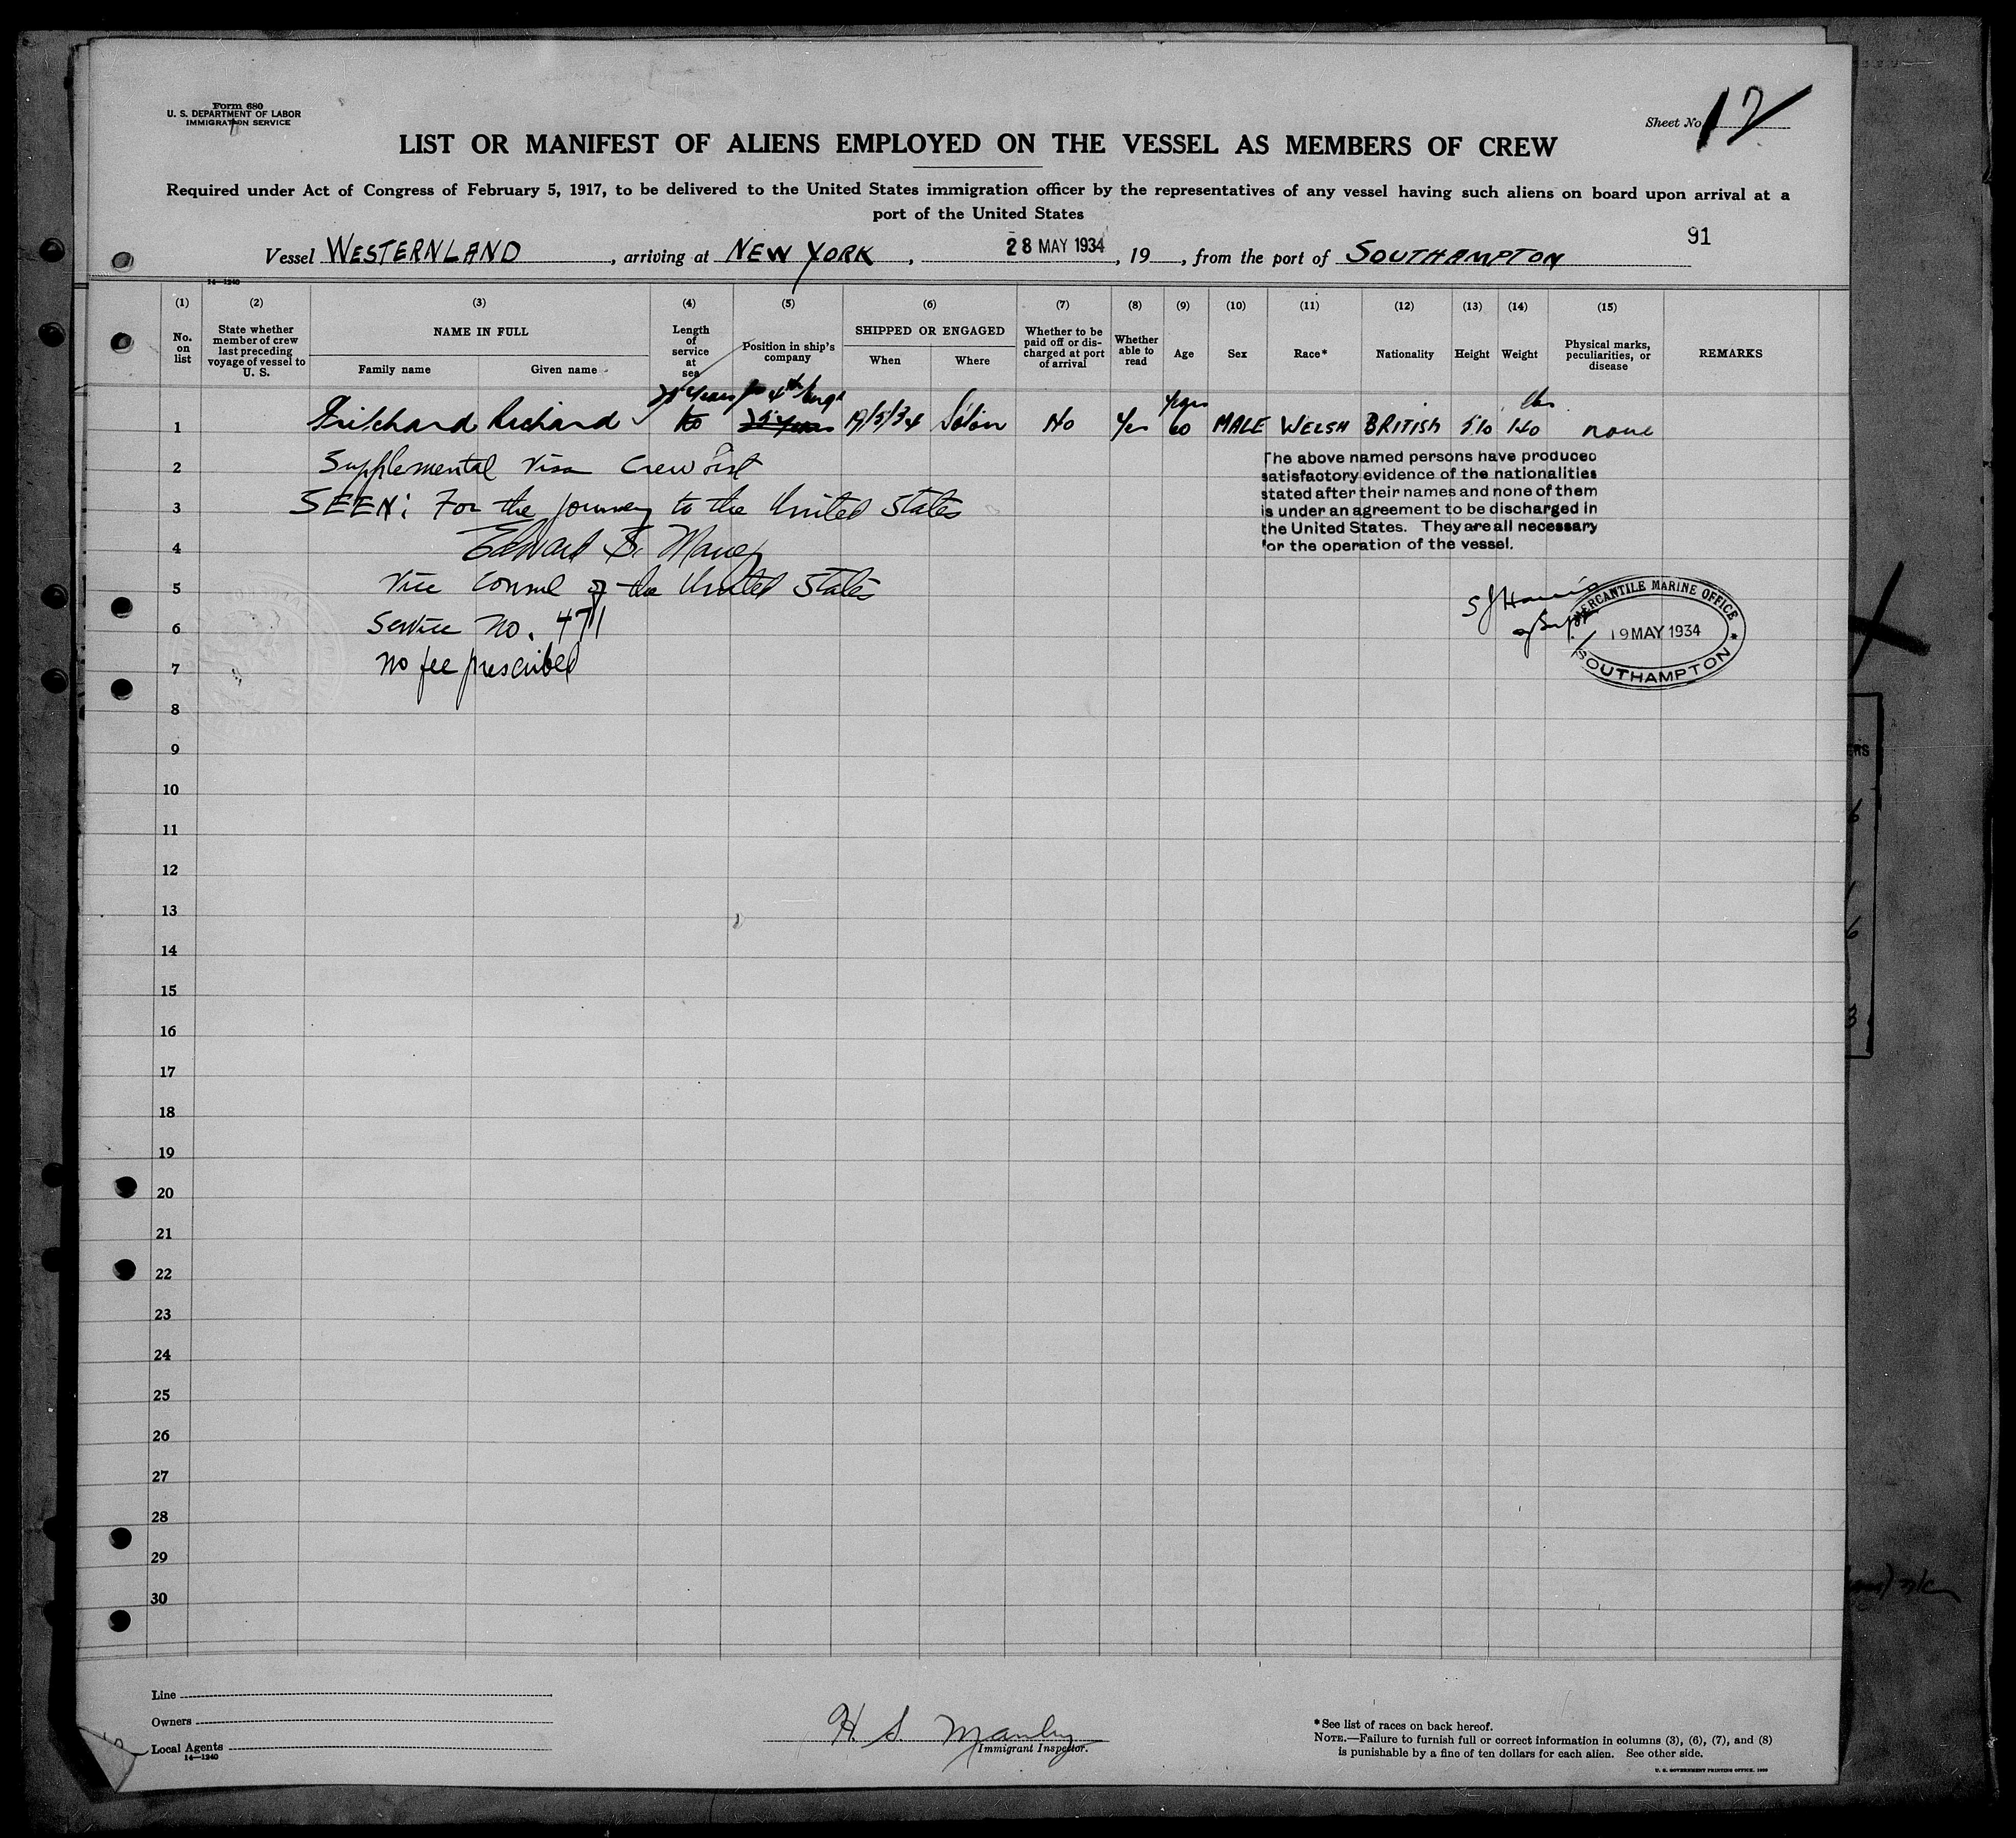 Form 680
U. S. DEPARTMENT OF LABOR
IMMIGRATION SERVICE
Sheet No. 12
LIST OR MANIFEST OF ALIENS EMPLOYED ON THE VESSEL AS MEMBERS OF CREW
Required under Act of Congress of February 5, 1917, to be delivered to the United States immigration officer by the representatives of any vessel having such aliens on board upon arrival at a
port of the United States
91
Vessel WESTERNLAND, arriving at NEW YORK, 28 MAY 1934, 19, from the port of SOUTHAMPTON
14—1240
(1) (2) (3) (4) (5) (6) (7) (8) (9) (10) (11) (12) (13) (14) (15)
No. on list
State whether member of crew last preceding voyage of vessel to U. S.
NAME IN FULL
Family name Given name
Length of service at sea
Position in ship's company
SHIPPED OR ENGAGED
When Where
Whether to be paid off or discharged at port of arrival
Whether able to read
Age
Sex
Race*
Nationality
Height
Weight
Physical marks, peculiarities, or disease
REMARKS
years 4th years lbs
1 Pritchard Richard 19/5/34 So'ton No Yes 60 MALE WELSH BRITISH 5'10 140 none
2 Supplemental Visa Crew List
3 SEEN: For the journey to the United States
4 Edward S. Maney
5 Vice Consul of the United States
6 Service No. 4711
7 No fee prescribed
The above named persons have produced
satisfactory evidence of the nationalities
stated after their names and none of them
is under an agreement to be discharged in
the United States. They are all necessary
for the operation of the vessel.
MERCANTILE MARINE OFFICE
19 MAY 1934
SOUTHAMPTON
8
9
10
11
12
13
14
15
16
17
18
19
20
21
22
23
24
25
26
27
28
29
30
Line
Owners
Local Agents
14—1240
H. S. Manley
Immigrant Inspector.
*See list of races on back hereof.
NOTE.—Failure to furnish full or correct information in columns (3), (6), (7), and (8)
is punishable by a fine of ten dollars for each alien. See other side.
U. S. GOVERNMENT PRINTING OFFICE. 1930